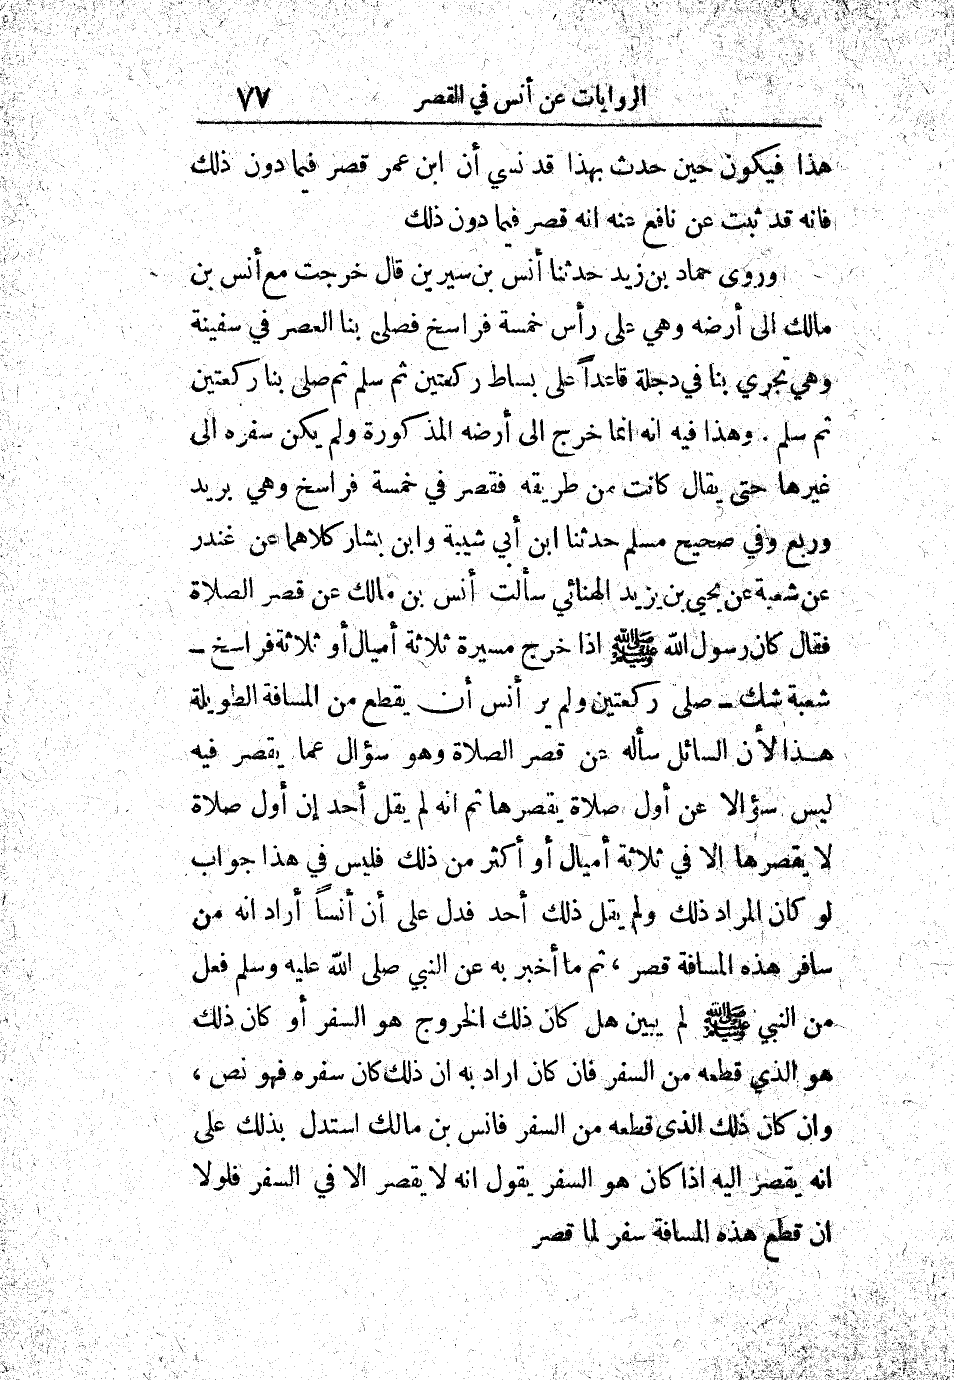 الروايات عن أنس في القصر ٧٧
هذا فيكون حين حدث بهذا قد نسي أن ابن عمر قصر فيما دون ذلك
فانه قد ثبت عن نافع عنه انه قصر فيما دون ذلك
وروى حماد بن زيد حدثنا أنس بن سيرين قال خرجت مع أنس بن
مالك الى أرضه وهي على رأس خمسة فراسخ فصلى بنا العصر في سفينة
وهي تجري بنا في دجلة قاعداً على بساط ركعتين ثم سلم ثم صلى بنا ركعتين
ثم سلم . وهذا فيه انه انما خرج الى أرضه المذكورة ولم يكن سفره الى
غيرها حتى يقال كانت من طريقه فقصر في خمسة فراسخ وهي بريد
وربع وفي صحيح مسلم حدثنا ابن أبي شيبة وابن بشار كلاهما عن غندر
عن شعبة عن يحيى بن يزيد الهنائي سألت أنس بن مالك عن قصر الصلاة
فقال كان رسول الله ﷺ اذا خرج مسيرة ثلاثة أميال أو ثلاثة فراسخ ـ
شعبة شك ـ صلى ركعتين ولم ير أنس أن يقطع من المسافة الطويلة
هـذا لأن السائل سأله عن قصر الصلاة وهو سؤال عما يقصر فيه
ليس سؤالا عن أول صلاة يقصرها ثم انه لم يقل أحد إن أول صلاة
لا يقصرها الا في ثلاثة أميال أو أكثر من ذلك فليس في هذا جواب
لو كان المراد ذلك ولم يقل ذلك أحد فدل على أن أنساً أراد انه من
سافر هذه المسافة قصر ، ثم ما أخبر به عن النبي صلى الله عليه وسلم فعل
من النبي ﷺ لم يبين هل كان ذلك الخروج هو السفر أو كان ذلك
هو الذي قطعه من السفر فان كان اراد به ان ذلك كان سفره فهو نص ،
وان كان ذلك الذى قطعه من السفر فانس بن مالك استدل بذلك على
انه يقصر اليه اذا كان هو السفر يقول انه لا يقصر الا في السفر فلولا
ان قطع هذه المسافة سفر لما قصر